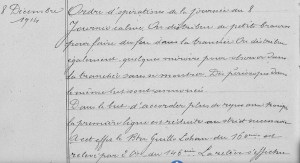 8 Décembre
1914
Ordre d'opérations de la journée du 8
Journée calme. On distribue de petits travaux
pour faire du feu dans la tranchée. On distribue
également quelques mirroirs pour observer dans
la tranchée sans se montrer. Des périscopes dans
le même but sont annoncés.
Dans le but d'accorder plus de repos aux troupes
la première ligne est réduite au strict minimum
A cet effet le Bon Guille Lohan du 160ème est
relevé par 2 Cies du 146ème La relève s'effectue